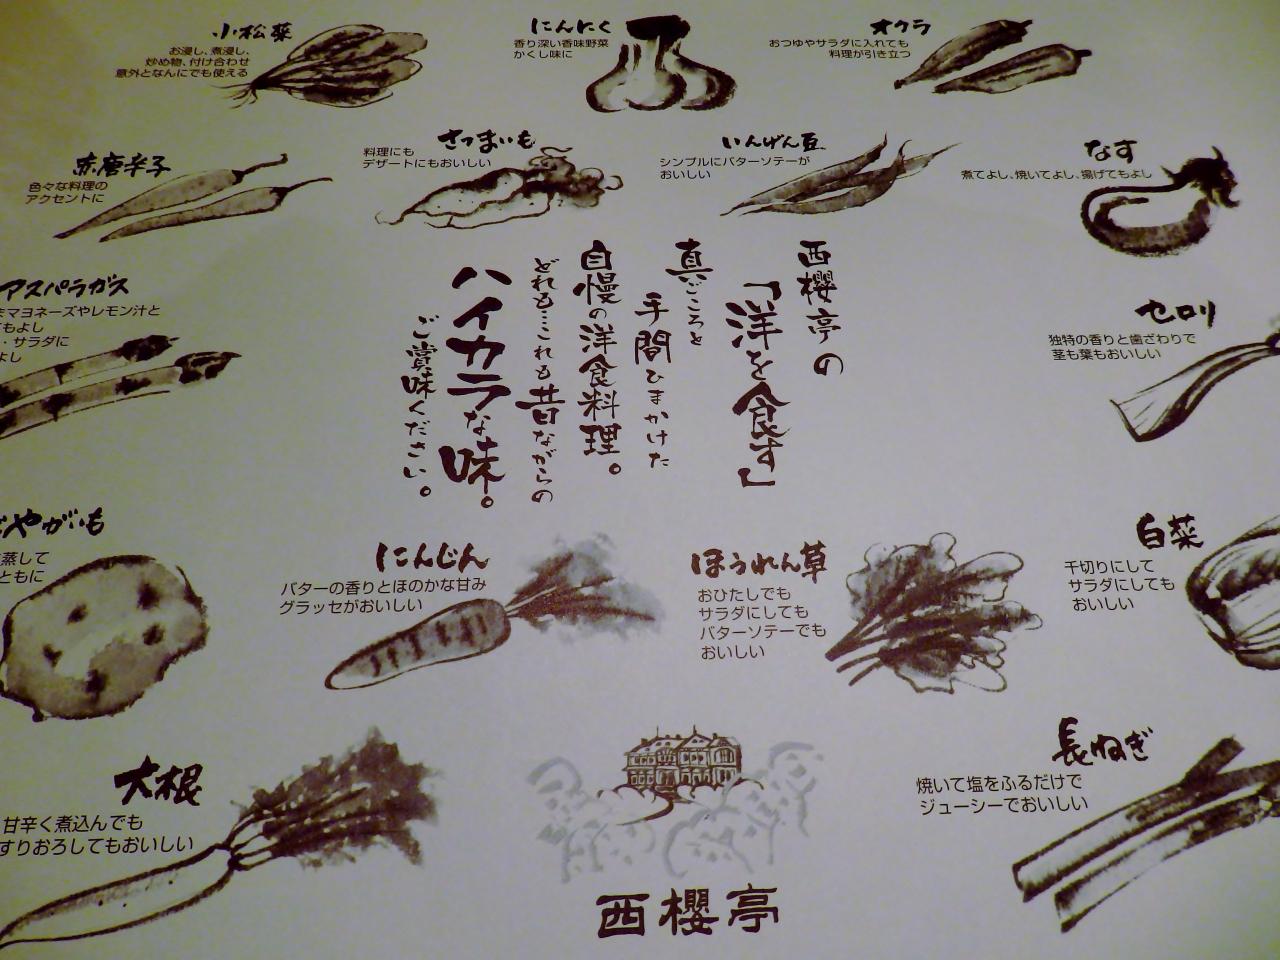 小松菜
お浸し、煮浸し、
炒め物、付け合わせ
意外となんにでも使える
にんにく
香り深い香味野菜
かくし味に
オクラ
おつゆやサラダに入れても
料理が引き立つ
赤唐辛子
色々な料理の
アクセントに
さつまいも
料理にも
デザートにもおいしい
いんげん豆
シンプルにバターソテーが
おいしい
なす
煮てよし、焼いてよし、揚げてもよし
アスパラガス
マヨネーズやレモン汁と
てもよし
・サラダに
よし
西櫻亭の
「洋を食す」
真ごころと
手間ひまかけた
自慢の洋食料理。
どれも…これも昔ながらの
ハイカラな味。
ご賞味ください。
セロリ
独特の香りと歯ざわりで
茎も葉もおいしい
じゃがいも
蒸して
ともに
にんじん
バターの香りとほのかな甘み
グラッセがおいしい
ほうれん草
おひたしでも
サラダにしても
バターソテーでも
おいしい
白菜
千切りにして
サラダにしても
おいしい
大根
甘辛く煮込んでも
すりおろしてもおいしい
長ねぎ
焼いて塩をふるだけで
ジューシーでおいしい
西櫻亭